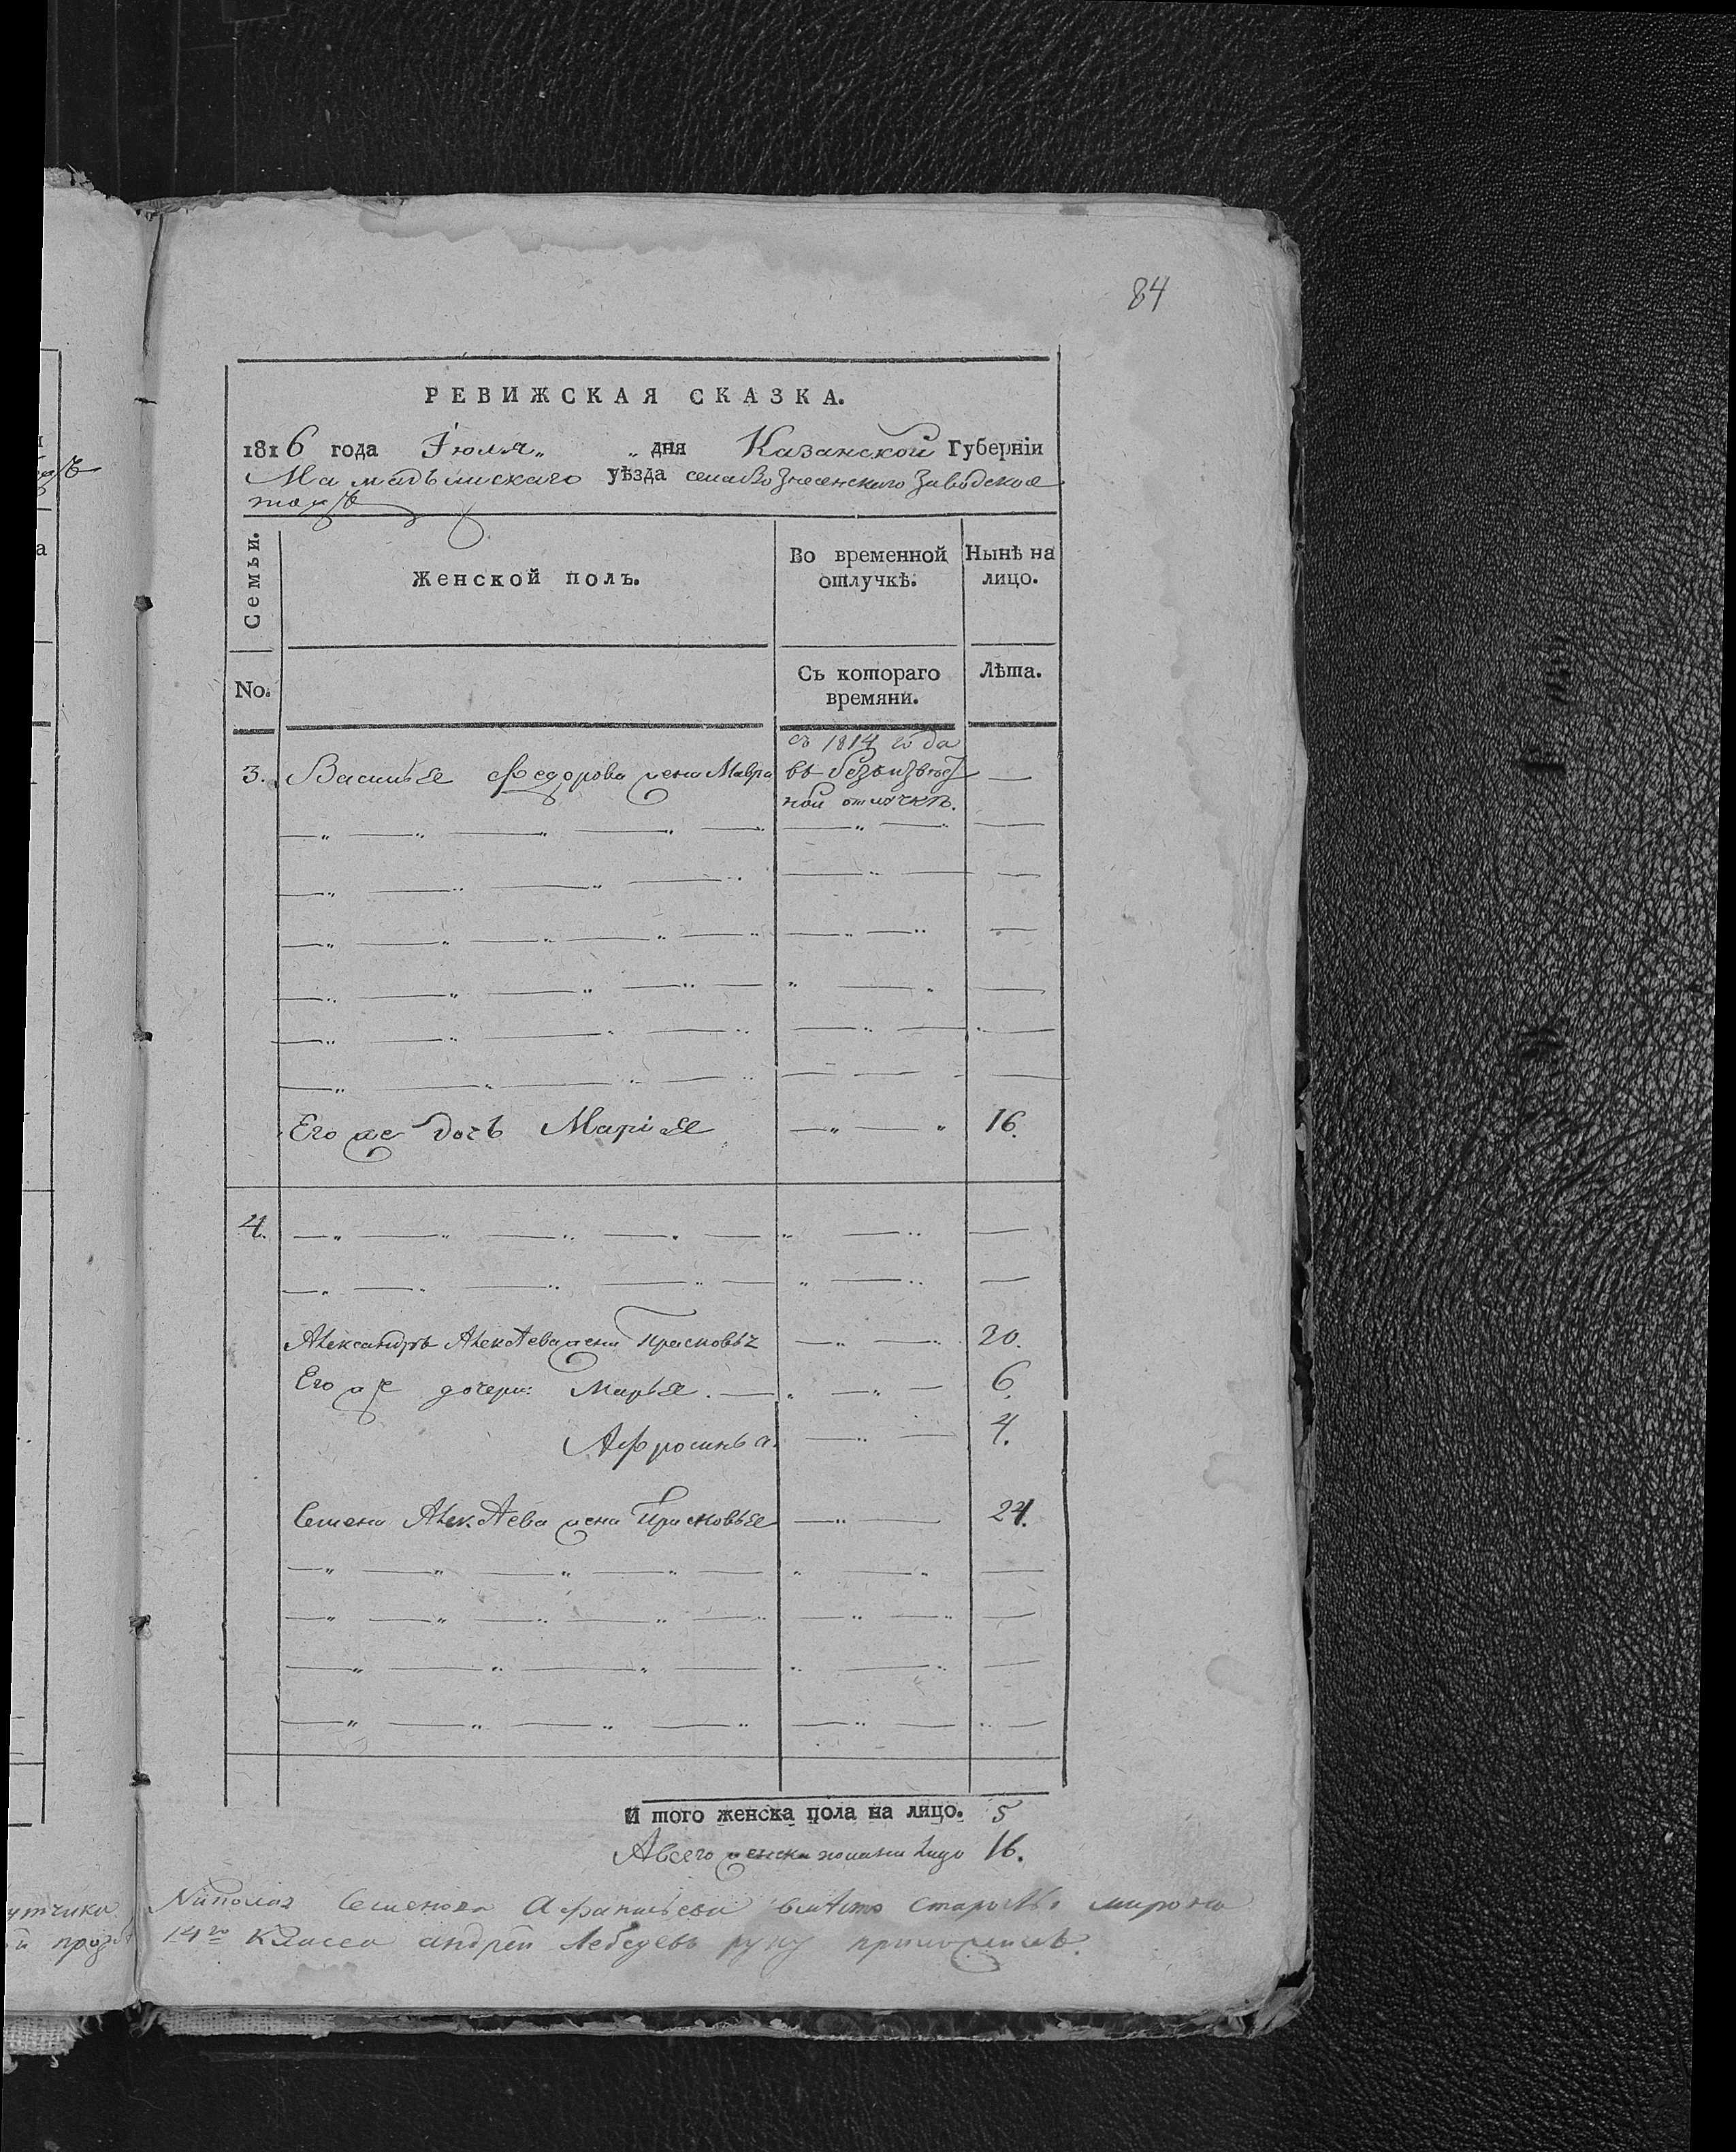 84
РЕВИЖСКАЯ СКАЗКА.
1816 года Іюля „ „ дня Казанской Губерніи
Мамадышскаго уѣзда села Вознесенскаго Заводское
тожъ
Семьи.
Женской полъ.
Во временной отлучкѣ.
Нынѣ на лицо.
No.
Съ котораго времяни.
Лѣта.
съ 1814 года
3. Василья Федорова жена Мавра въ безъизвѣст —
ной отлучкѣ.
Его же дочь Марія 16.
4.
Александръ Алексѣева жена Прасковья 20.
Его же дочери: Марья. 6.
Афросинья. 4.
Семена Алексѣева жена Прасковья 24.
И того женска пола на лицо. 5
А всего женска пола на лицо 16.
утчика
Семенова Афанасьева вмѣсто старосты мирона
14го класса андрей Лебедевъ руку приложилъ.